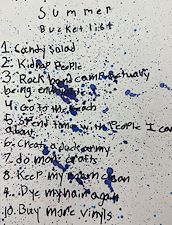 Summer
Bucket list
1. Candy Salad
2. Kidnap People
3. Rock band camp actually
being en
4. Go to the beach
5. Spend time with People I care
about
6. Create a duck army
7. do more crafts
8. Keep my room clean
9. Dye my hair again
10. Buy more vinyls